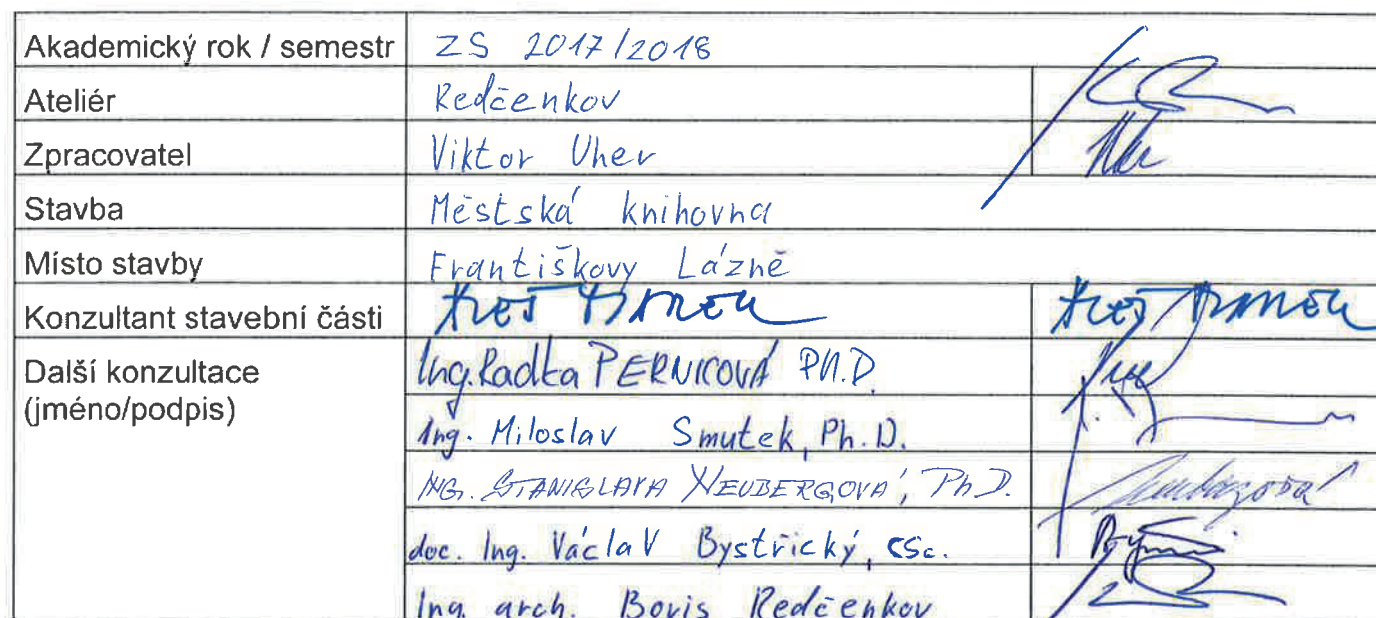 Akademický rok / semestr ZS 2017/2018
Ateliér Redčenkov
Zpracovatel Viktor Uher
Stavba Městská knihovna
Místo stavby Františkovy Lázně
Konzultant stavební části
Další konzultace Ing. Radka PERNICOVÁ Ph.D.
(jméno/podpis)
Ing. Miloslav Smutek, Ph.D.
ING. STANISLAVA NEUBERGOVÁ, Ph.D.
doc. Ing. Václav Bystřický, CSc.
Ing. arch. Boris Redčenkov